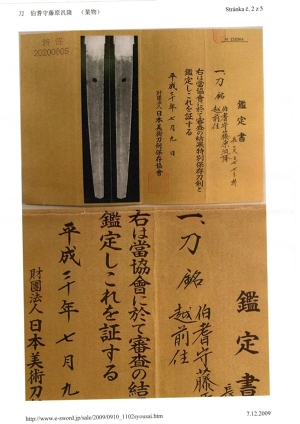 刀　伯耆守藤原汎隆　(業物)
Stránka č. 2 z 5
鑑定書
一、刀 銘 伯耆守藤原汎隆
越前住
右は當協會に於て審査の結果特別保存刀剣と
鑑定しこれを証する
平成二十年七月九日
財團法人日本美術刀剣保存協會
鑑定書
長
一、刀 銘 伯耆守藤
越前住
右は當協會に於て審査の結
鑑定しこれを証する
平成二十年七月九
財團法人日本美術刀
http://www.e-sword.jp/sale/2009/0910_1102syousai.htm
7.12.2009